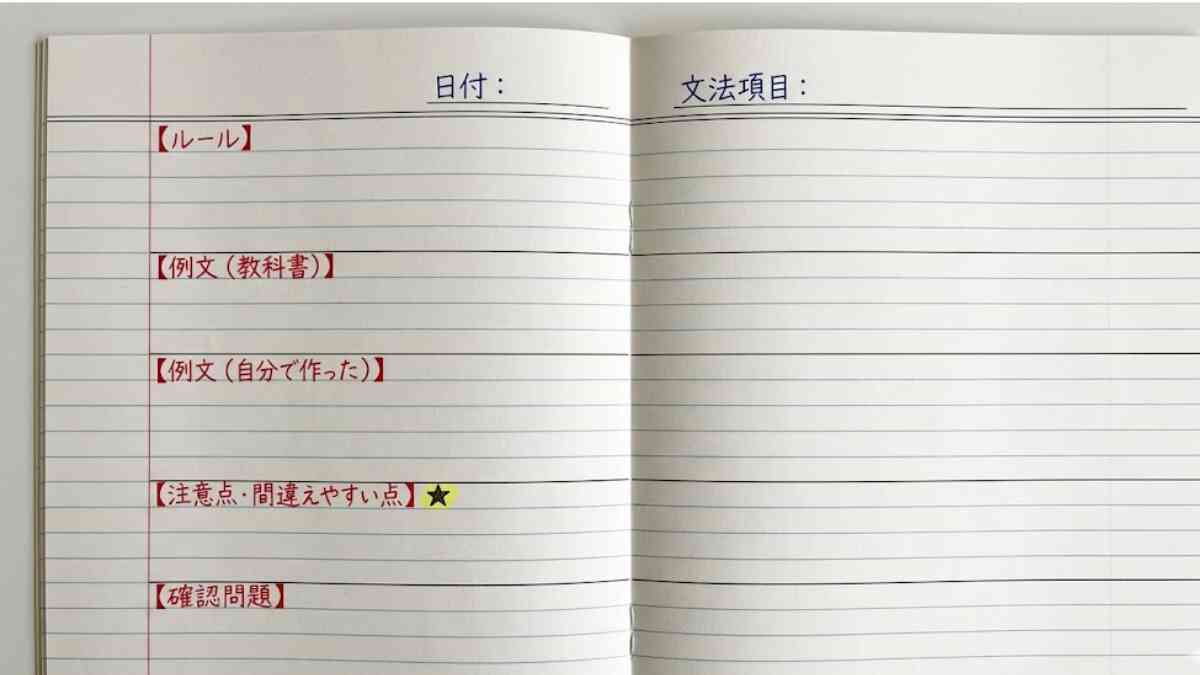 日付:
文法項目:
【ルール】
【例文(教科書)】
【例文(自分で作った)】
【注意点・間違えやすい点】★
【確認問題】